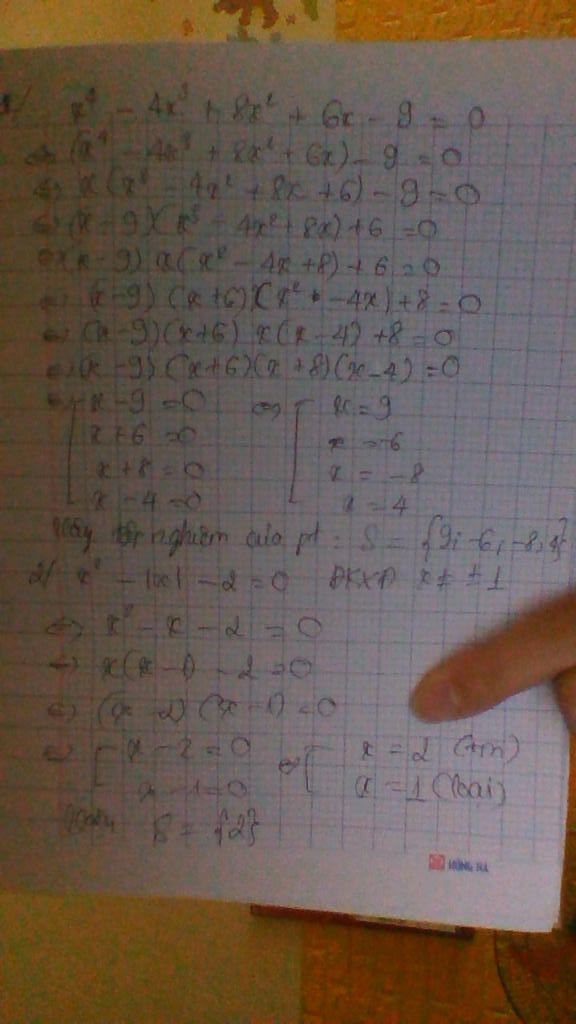 1/ x⁴ - 4x³ + 8x² + 6x - 9 = 0
⇔ (x⁴ - 4x³ + 8x² + 6x) - 9 = 0
⇔ x(x³ - 4x² + 8x + 6) - 9 = 0
⇔ (x - 9)(x³ - 4x² + 8x) + 6 = 0
⇔ (x - 9) x(x² - 4x + 8) + 6 = 0
⇔ (x - 9) (x + 6)(x² - 4x) + 8 = 0
⇔ (x - 9)(x + 6) x(x - 4) + 8 = 0
⇔ (x - 9) (x + 6)(x + 8)(x - 4) = 0
⇔ [ x - 9 = 0 ⇔ [ x = 9
x + 6 = 0 x = -6
x + 8 = 0 x = -8
x - 4 = 0 x = 4
Vậy tập nghiệm của pt : S = {9; -6; -8; 4}
2/ x² - |x| - 2 = 0 ĐKXĐ x ≠ ± 1
⇔ x² - x - 2 = 0
⇔ x(x - 1) - 2 = 0
⇔ (x - 2) (x - 1) = 0
⇔ [ x - 2 = 0 ⇔ [ x = 2 (tm)
x - 1 = 0 x = 1 (loại)
Vậy S = {2}
HỒNG HÀ